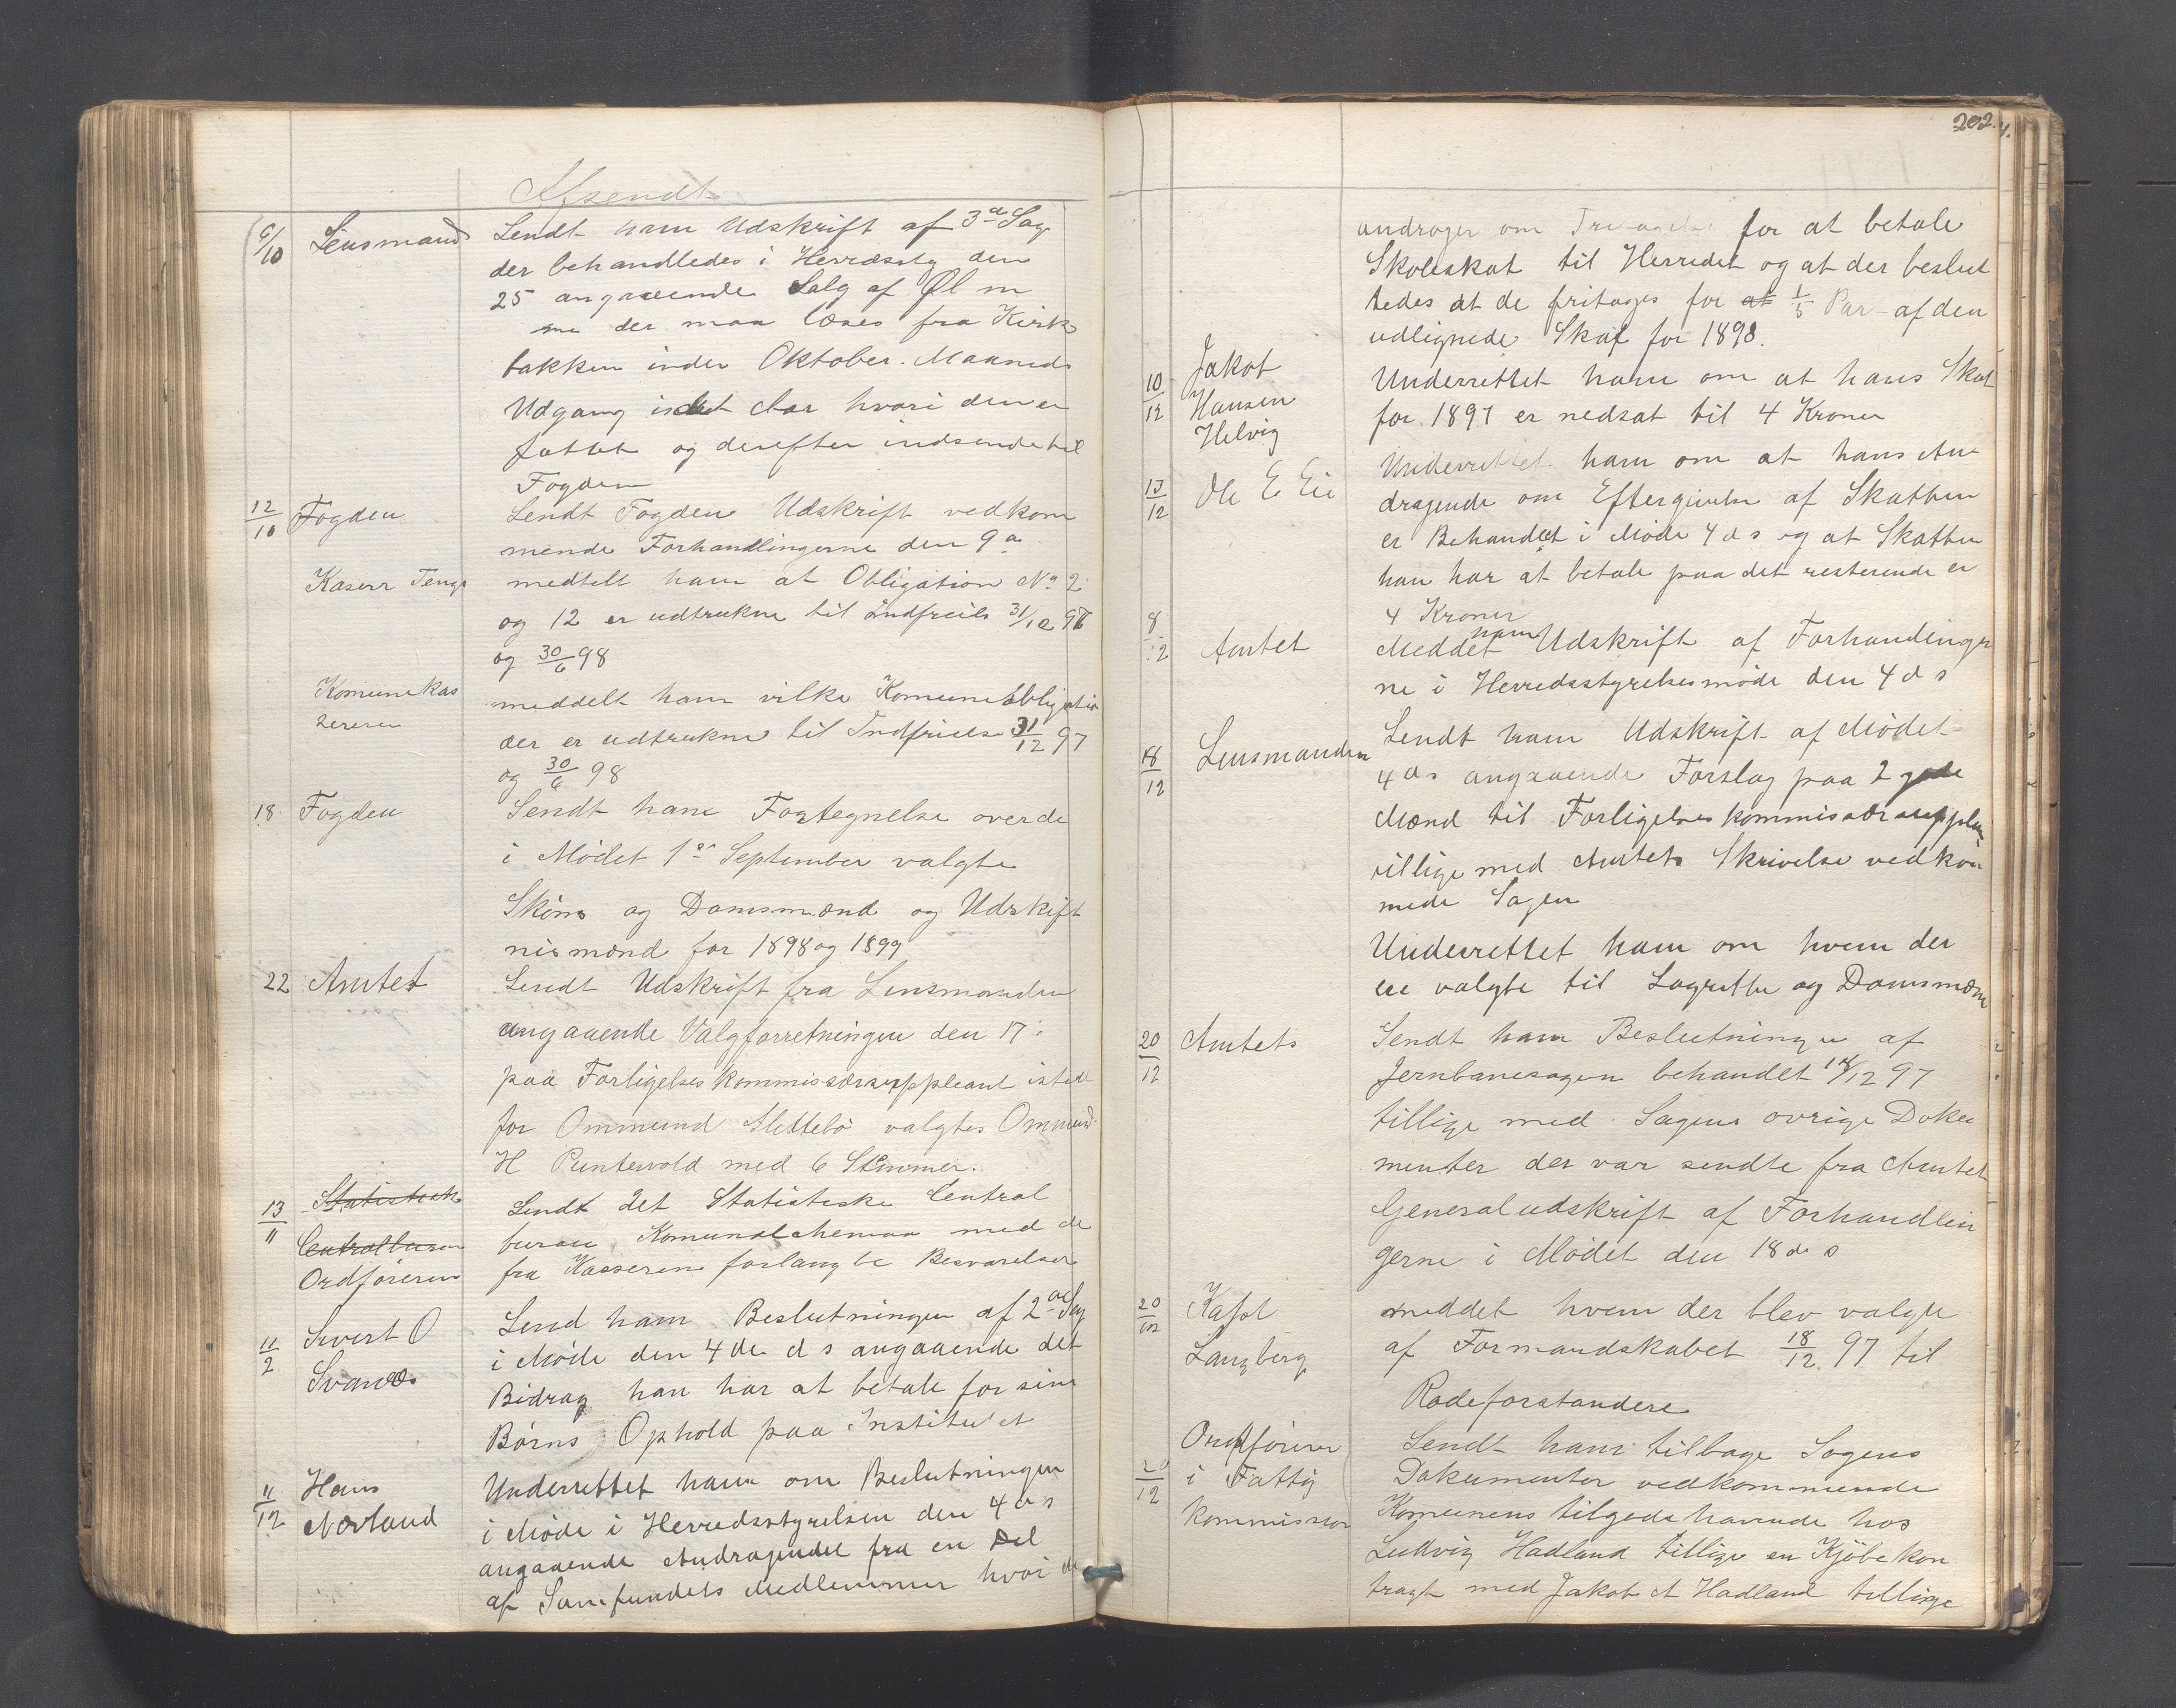 Afsendt
6/10 Lensmand Sendt ham Udskrift af 3de Sag
der behandledes i Herredssty den
25 angaaende Salg af Øl m
der maa læses fra Kirk
bakken inden Oktober Maaneds
Udgang hvori den er
fattet og derefter indsende til
Fogden
12/10 Fogden Sendt Fogden Udskrift vedkom
mende Forhandlingerne den 9a
Kaserr Tengs medtelt ham at Obligation No 2
og 12 er udtrukne til Indfrcils 31/12 97
og 30/6 98
Komunekas
sereren
meddelt ham vilke Komuneobligatio
der er udtrukne til Indfrielse 31/12 97
og 30/6 98
18 Fogden Sendt ham Fortegnelse over de
i Mødet 1ste September valgte
Skøns og Domsmænd og Udskift
nismænd for 1898 og 1899
22 Amtet Sendt Udskrift fra Lensmanden
angaaende Valgforretningen den 17:
paa Forligelseskommissærsuppleant isted
for Ommund Slettebø valgtes Ommund
H Puntervold med 6 Stemmer.
13/11 Statistisk
Centralbureau
Ordføreren
Sendt det Statistiske Central
bureau Komunalskemaa med de
fra Kasseren forlangte Besvarelser
11/2 Sivert O
Svanes
Send ham Beslutningen af 2den Sag
i Møde den 4de d s angaaende det
Bidrag han har at betale for sine
Børns Ophold paa Institutet
11/12 Hans
Nævland
Underrettet ham om Beslutningen
i Møde i Herredsstyrelsen den 4 d s
angaaende Andragendet fra en Del
af Samfundets Medlemmer hvori de
202.
androger om for at betale
Skoleskat til Herredet og at der beslut
tedes at de fritages for at 1/5 Par af den
udlignede Skat for 1898.
10/12 Jakob
Hansen
Helvig
Underrettet ham om at hans Skat
for 1897 er nedsat til 4 Kroner
13/12 Ole E Eie Underrettet ham om at hans An
dragende om Eftergivelse af Skatten
er Behandlet i Møde 4 d s og at Skatten
han har at betale paa det resterende er
4 Kroner
8/12 Amtet Meddet ham Udskrift af Forhandinger
ne i Herredsstyrelsesmøde den 4 d s
18/12 Lensmanden Sendt ham Udskrift af Mødet
4 ds angaaende Forslag paa 2 gode
Mænd til Forligelseskommisærsupplean
tillige med Amtets Skrivelse vedkom
mede Sagen
Underrettet ham om hvem der
ere valgte til Lagrette og Domsmæn
20/12 Amtets Sendt ham Beslutningen af
Jernbanesagen behandlet 18/12 97
tillige med Sagens øvrige Doku
menter der var sendte fra Amtet
Generaludskrift af Forhandlin
gerne i Mødet den 18 d s
20/12 Kapt
Langberg
meddet hvem der blev valgte
af Formandskabet 18/12 97 til
Rodeforstandere
20/12 Ordføren
i Fattig
kommission
Sendt ham tilbage Sagens
Dokumenter vedkommende
Komunens tilgodehavende hos
Ludvig Hadland tillige en Kjøbekon
tragt med Jakob A Hadland tillige